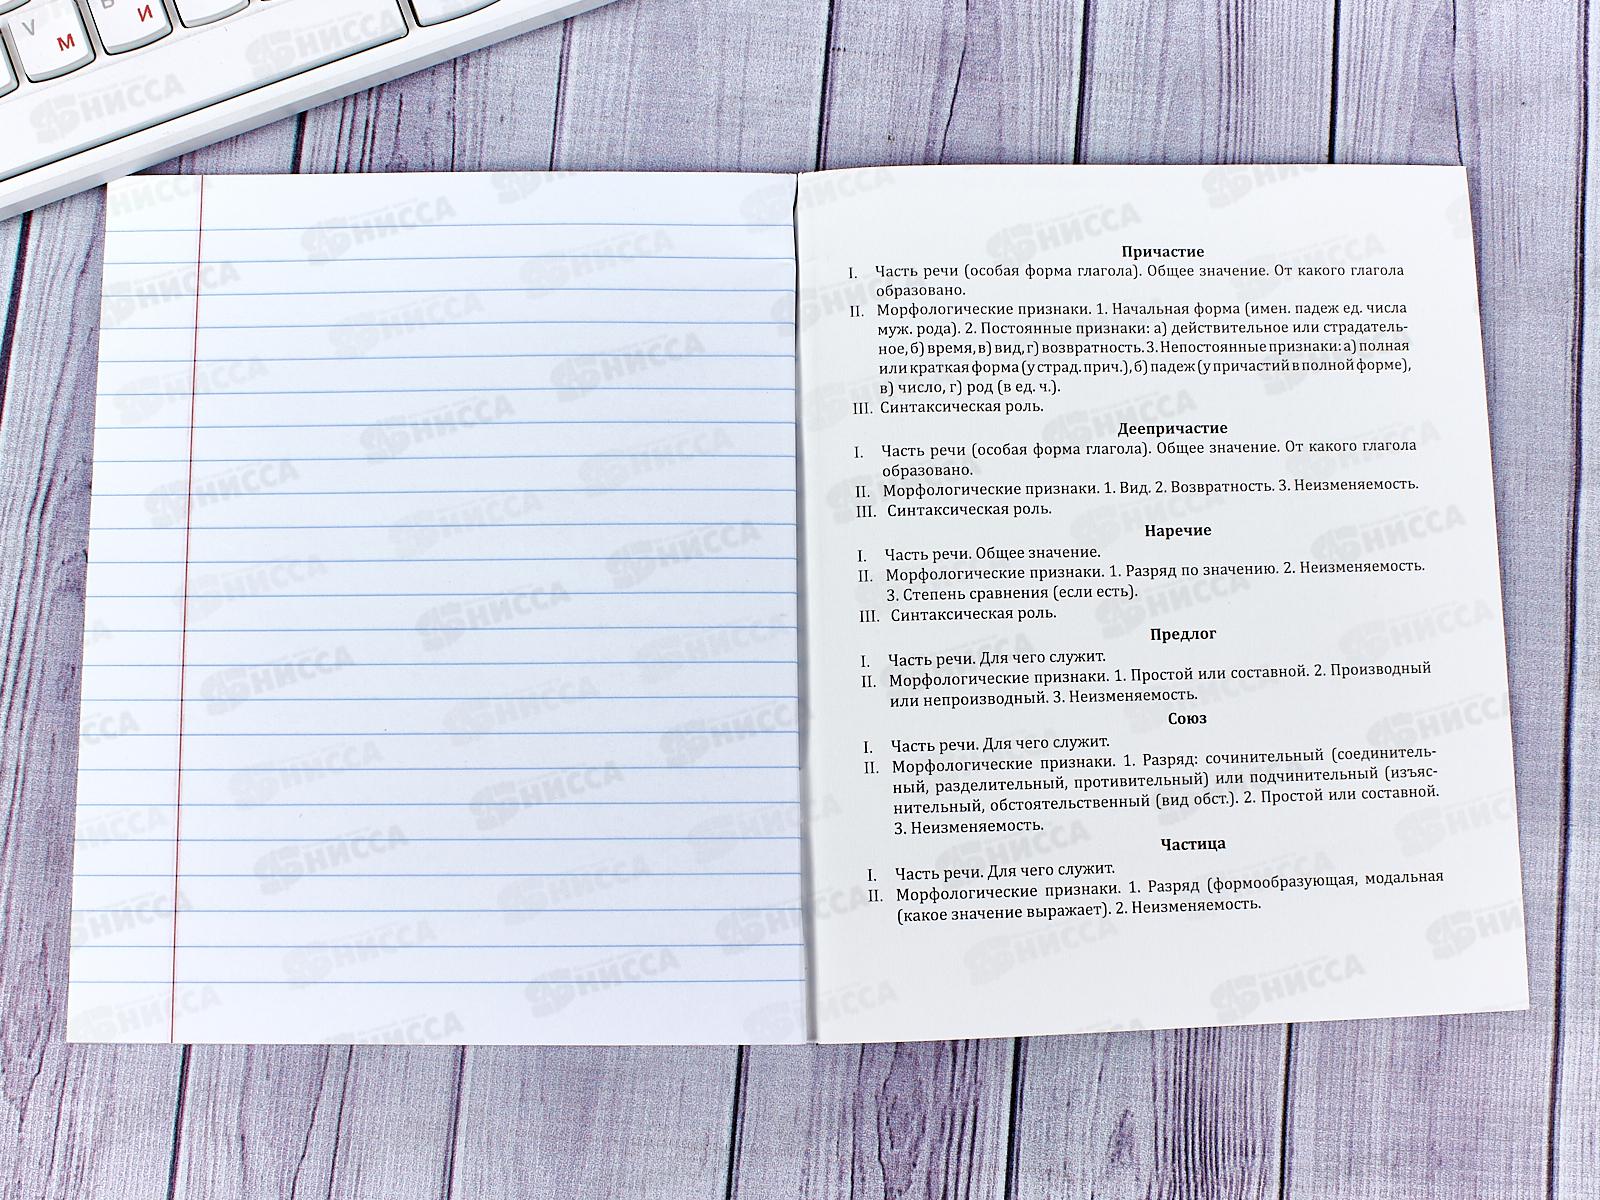 V
М
И
Причастие
I. Часть речи (особая форма глагола). Общее значение. От какого глагола
образовано.
II. Морфологические признаки. 1. Начальная форма (имен. падеж ед. числа
муж. рода). 2. Постоянные признаки: а) действительное или страдатель-
ное, б) время, в) вид, г) возвратность. 3. Непостоянные признаки: а) полная
или краткая форма (у страд. прич.), б) падеж (у причастий в полной форме),
в) число, г) род (в ед. ч.).
III. Синтаксическая роль.
Деепричастие
I. Часть речи (особая форма глагола). Общее значение. От какого глагола
образовано.
II. Морфологические признаки. 1. Вид. 2. Возвратность. 3. Неизменяемость.
III. Синтаксическая роль.
Наречие
I. Часть речи. Общее значение.
II. Морфологические признаки. 1. Разряд по значению. 2. Неизменяемость.
3. Степень сравнения (если есть).
III. Синтаксическая роль.
Предлог
I. Часть речи. Для чего служит.
II. Морфологические признаки. 1. Простой или составной. 2. Производный
или непроизводный. 3. Неизменяемость.
Союз
I. Часть речи. Для чего служит.
II. Морфологические признаки. 1. Разряд: сочинительный (соединитель-
ный, разделительный, противительный) или подчинительный (изъяс-
нительный, обстоятельственный (вид обст.). 2. Простой или составной.
3. Неизменяемость.
Частица
I. Часть речи. Для чего служит.
II. Морфологические признаки. 1. Разряд (формообразующая, модальная
(какое значение выражает). 2. Неизменяемость.